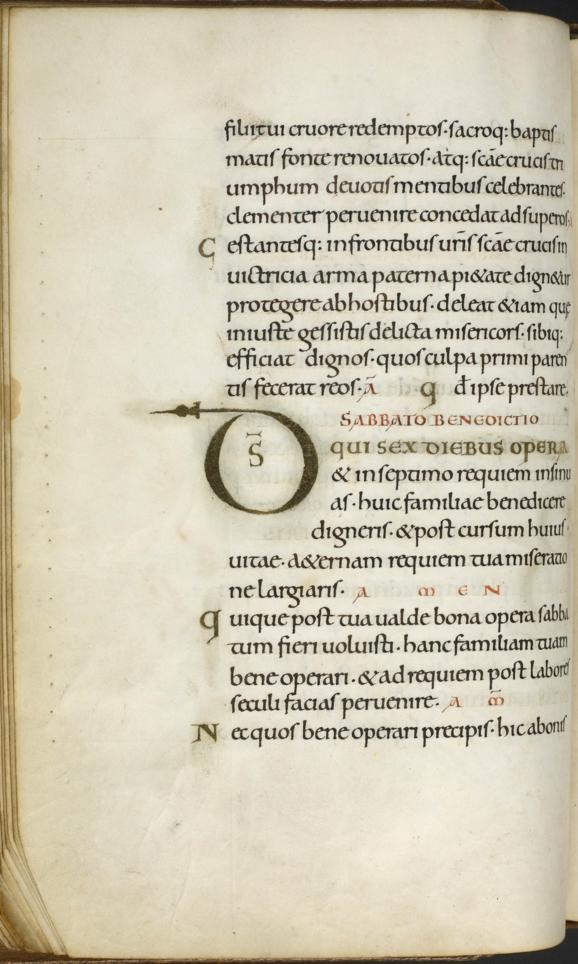 filii tui cruore redemptos· sacroq: baptis
matis fonte renouatos· atq: scāe crucis tri
umphum deuotis mentibus celebrantes·
clementer peruenire concedat ad superos·
Gestantesq: in frontibus uris̄ scāe crucis in
uictricia arma paterna pi&ate dign&ur
protegere ab hostibus· deleat &iam que
iniuste gessistis delicta misericors· sibiq:
efficiat dignos· quos culpa primi paren
tis fecerat reos· Ā q d̄ ipse prestare·
SABBATO BENEDICTIO
D̄S QUI SEX DIEBUS OPERA
& in septimo requiem insinu
as· huic familiae benedicere
digneris· & post cursum huius
uitae· a&ernam requiem tua miseratio
ne largiaris· A M E N
Quique post tua ualde bona opera sabba
tum fieri uoluisti· hanc familiam tuam
bene operari· & ad requiem post labores
seculi facias peruenire· A M̄
Nec quos bene operari precipis· hic a bonis